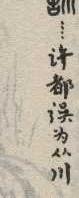 …许都误为从川